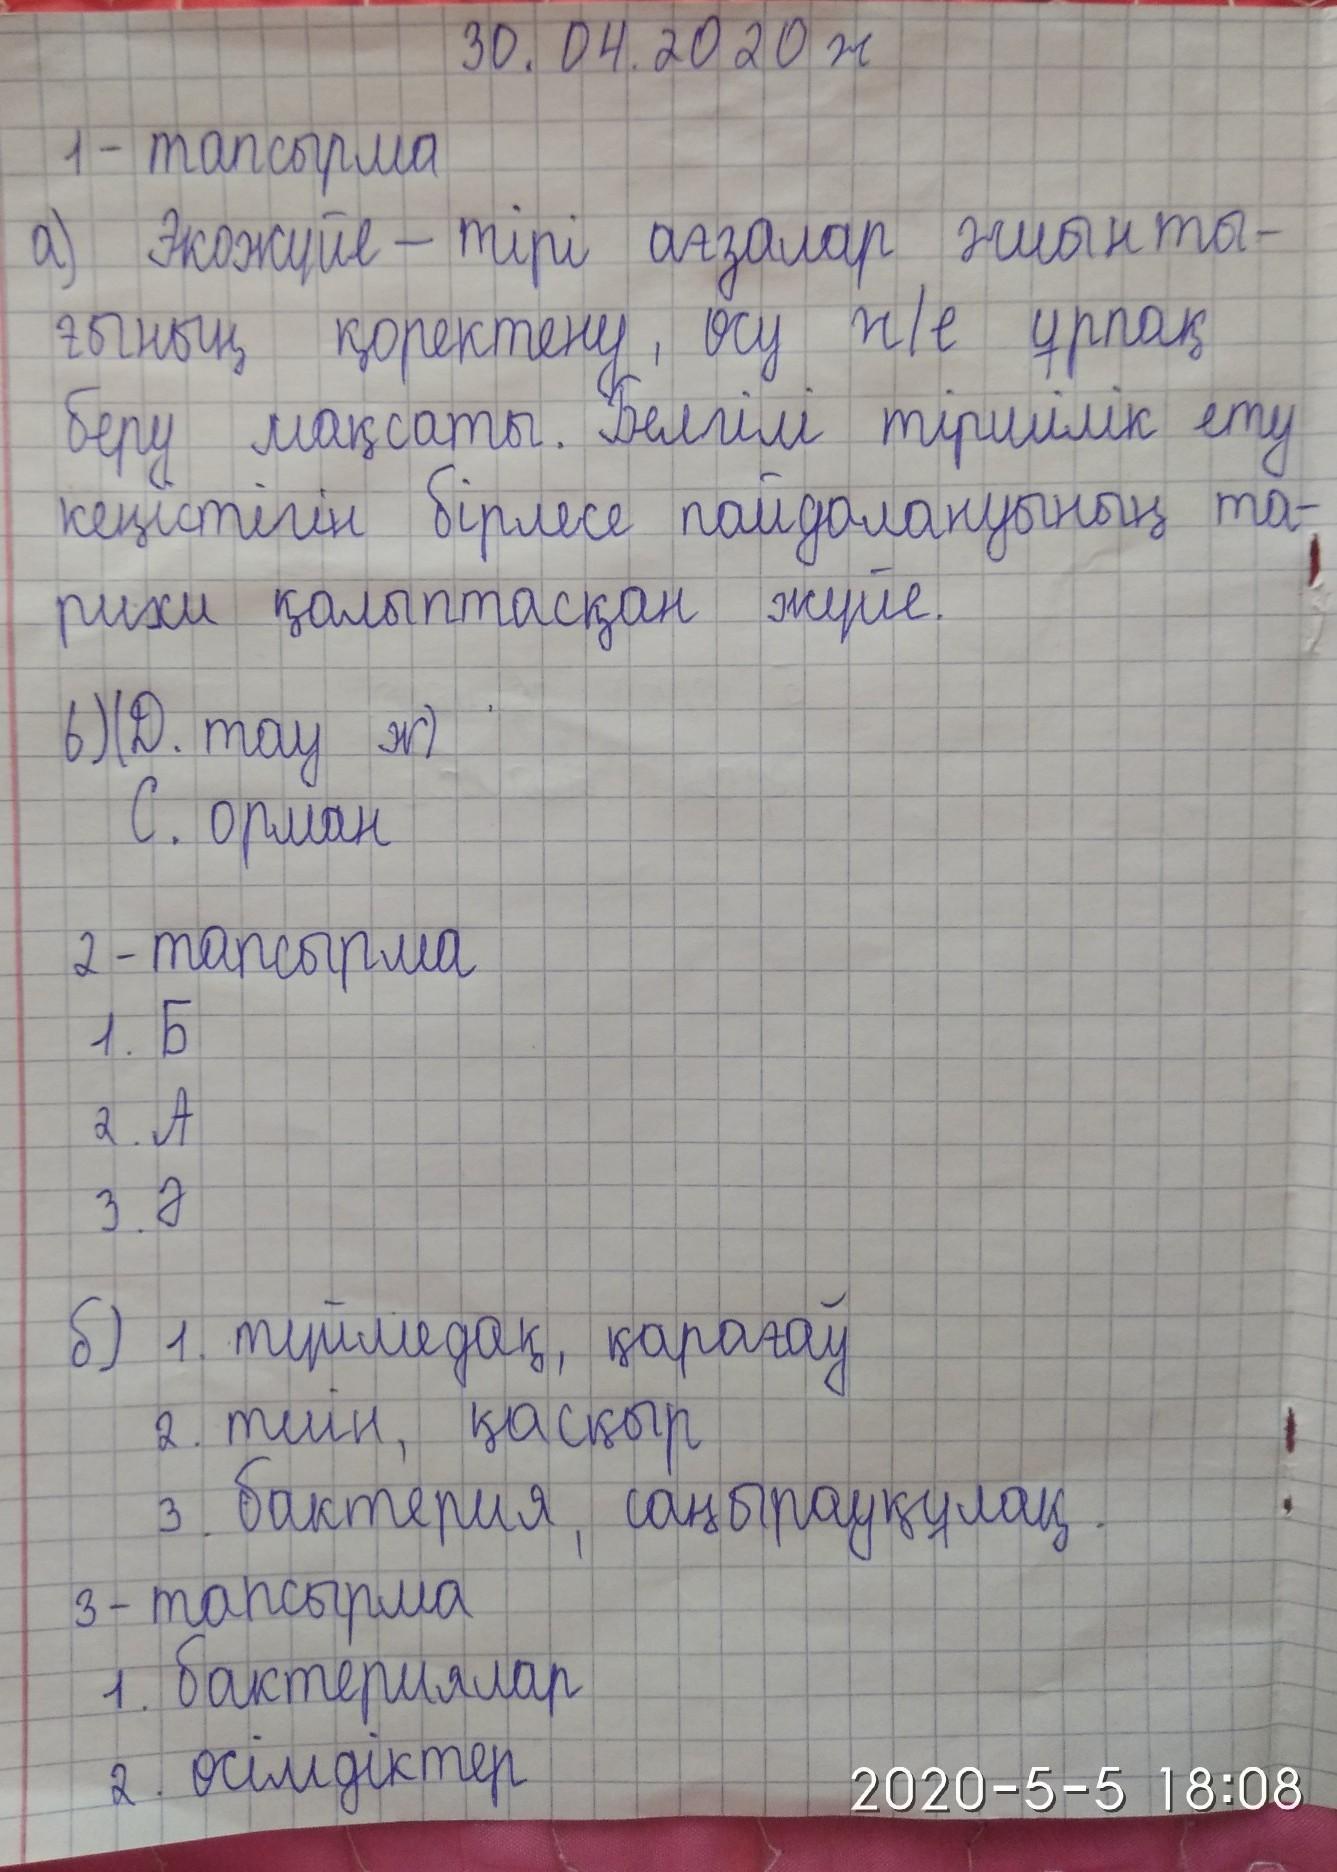 30.04.2020 ж
1- тапсырма
а) Экожүйе – тірі ағзалар жиынты-
ғының қоректену, өсу ж/е ұрпақ
беру мақсаты. Белгілі тіршілік ету
кеңістігін бірлесе пайдалануының та-
рихи қалыптасқан жүйе.
б) (D. тау ж)
С. орман
2- тапсырма
1. Б
2. А
3. Ә
б) 1. түймедақ, қарағаў
2. тиін, қасқыр
3. бактерия, саңырауқұлақ.
3- тапсырма
1. бактериялар
2. өсімдіктер
2020-5-5 18:08